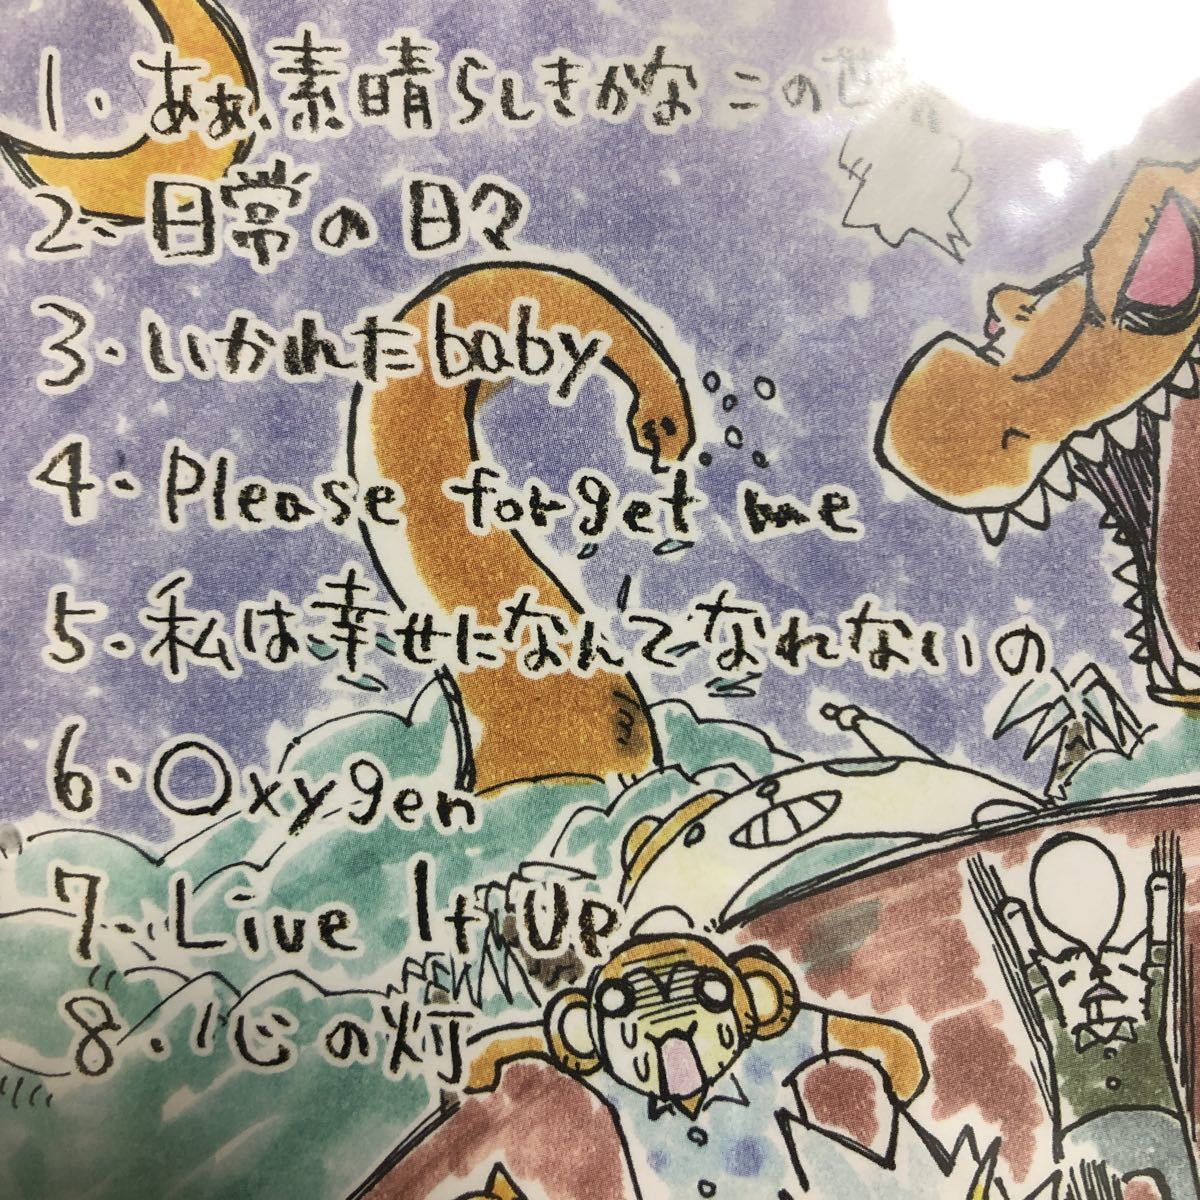 1. あぁ、素晴らしきかな この世
2. 日常の日々
3. いかれたbaby
4. Please forget me
5. 私は幸せになんてなれないの
6. Oxygen
7. Live It Up
8. 心の灯